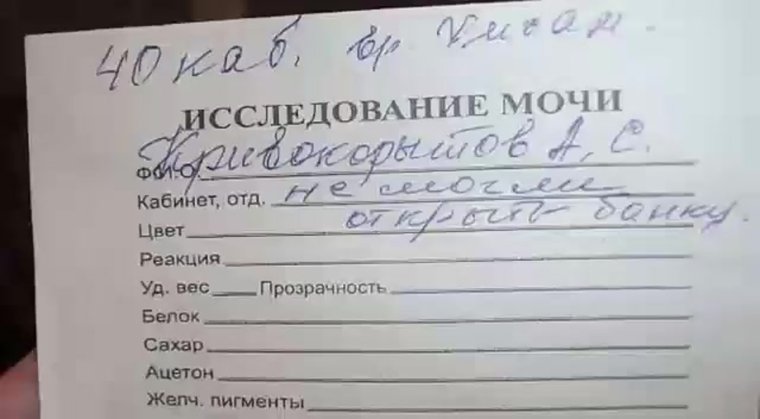 40 каб. вр.
ИССЛЕДОВАНИЕ МОЧИ
Ф.И.О. Кривокорытов А. С.
Кабинет, отд. не могли
открыть банку.
Цвет
Реакция
Уд. вес Прозрачность
Белок
Сахар
Ацетон
Желч. пигменты